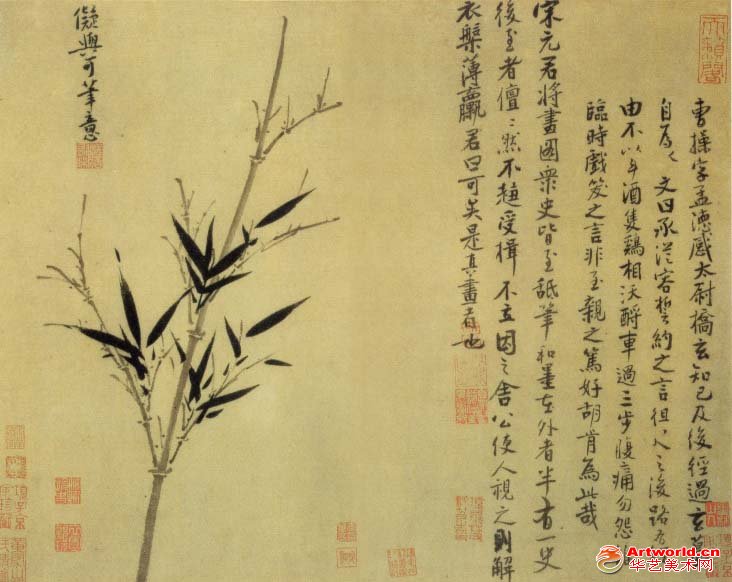 天籟閣
曹操字孟德感太尉橋玄知己及後經過玄
自為之文曰承從容誓約之言徂之後路有
由不以斗酒隻鷄相沃酹車過三步腹痛勿怨
臨時戲笑之言非至親之篤好胡肯為此哉
宋元君將畫圖衆史皆至舐筆和墨在外者半有一史
後至者儃〻然不趨受揖不立因之舍公使人視之則解
衣槃薄臝君曰可矣是真畫者也
儗與可筆意
Artworld.cn
华艺美术网